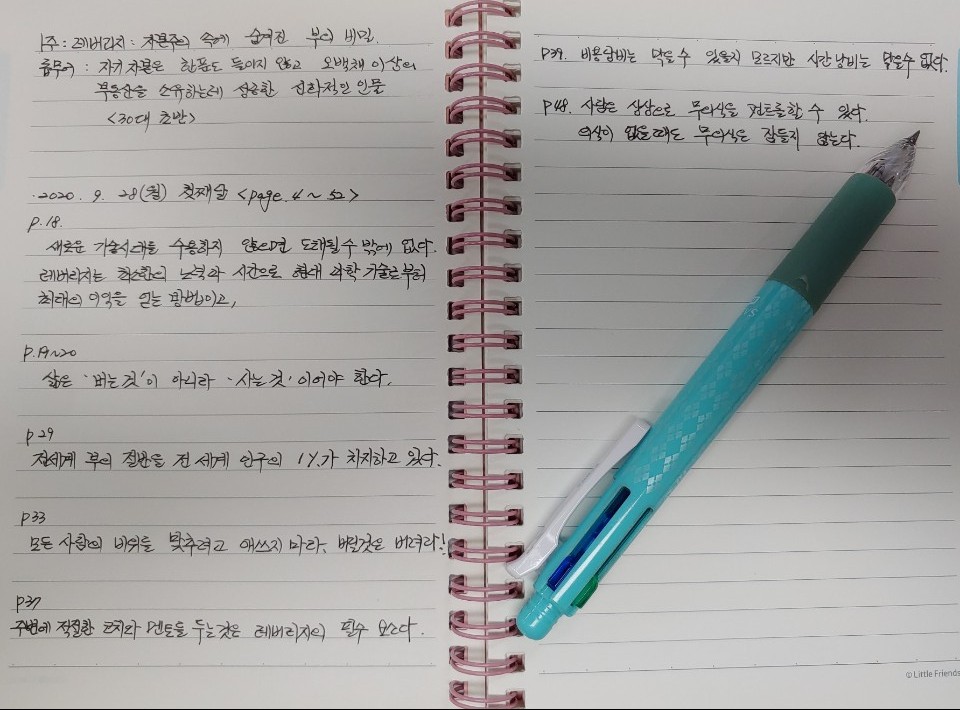 1주 : 레버리지 : 자본주의 속에 숨겨진 부의 비밀.
롭무어 : 자기 자본은 한푼도 들이지 않고 오백채 이상의
부동산을 소유하는데 성공한 신화적인 인물
<30대 초반>
· 2020. 9. 28(월) 첫째날 <page. 4 ~ 52>
p.18.
새로운 기술시대를 수용하지 않으면 도태될 수 밖에 없다.
레버리지는 최소한의 노력과 시간으로 현대 과학 기술로부터
최대의 이익을 얻는 방법이고,
p.19~20
삶은 '버는 것'이 아니라 '사는 것' 이어야 한다.
p29
전세계 부의 절반을 전 세계 인구의 1%가 차지하고 있다.
p33
모든 사람의 비위를 맞추려고 애쓰지 마라, 버릴것은 버려라!
p37
주변에 적절한 코치와 멘토를 두는것은 레버리지의 필수 요소다.
p39. 비용낭비는 막을 수 있을지 모르지만 시간낭비는 막을수 없다.
p48. 사람은 상상으로 무의식을 컨트롤할 수 있다.
의식이 없을때도 무의식은 잠들지 않는다.
© Little Friends